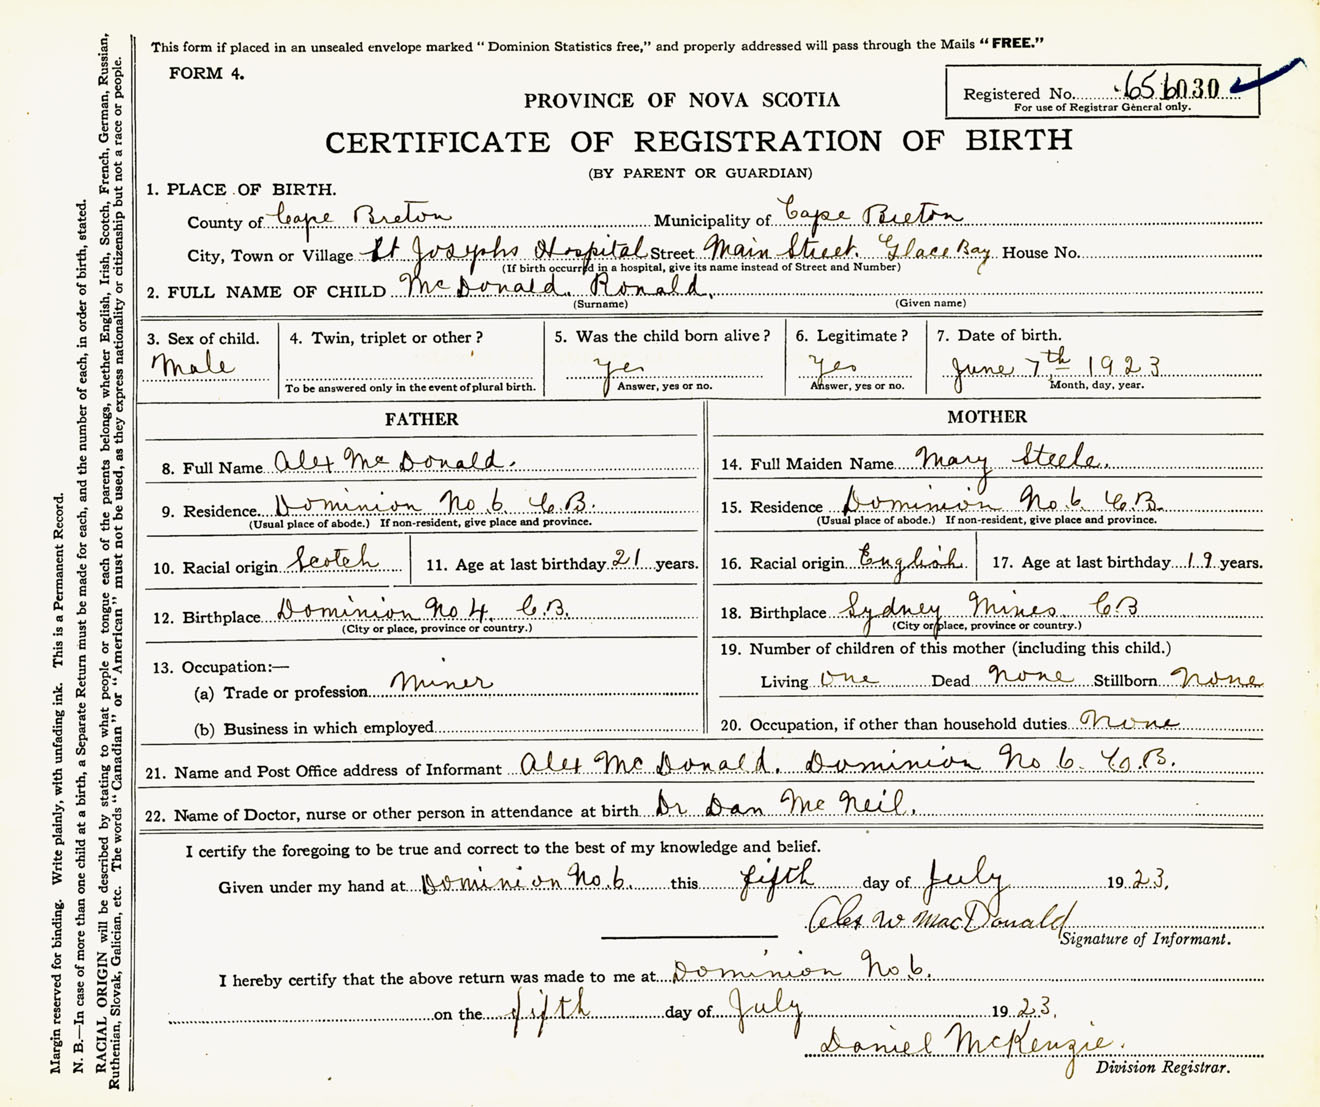 This form if placed in an unsealed envelope marked "Dominion Statistics free," and properly addressed will pass through the Mails "FREE."
FORM 4.
Registered No. 656030
For use of Registrar General only.
PROVINCE OF NOVA SCOTIA
CERTIFICATE OF REGISTRATION OF BIRTH
(BY PARENT OR GUARDIAN)
1. PLACE OF BIRTH.
County of Cape Breton Municipality of Cape Breton
City, Town or Village St Josephs Hospital Street Main Street. Glace Bay House No.
(If birth occurred in a hospital, give its name instead of Street and Number)
2. FULL NAME OF CHILD McDonald. Ronald.
(Surname) (Given name)
3. Sex of child. 4. Twin, triplet or other? 5. Was the child born alive? 6. Legitimate? 7. Date of birth.
Male Yes Yes June 7th 1923
To be answered only in the event of plural birth. Answer, yes or no. Answer, yes or no. Month, day, year.
FATHER
8. Full Name Alex McDonald.
9. Residence. Dominion No 6. C.B.
(Usual place of abode.) If non-resident, give place and province.
10. Racial origin Scotch 11. Age at last birthday 21 years.
12. Birthplace Dominion No 4. C.B.
(City or place, province or country.)
13. Occupation:—
(a) Trade or profession Miner
(b) Business in which employed
MOTHER
14. Full Maiden Name Mary Steele.
15. Residence Dominion No 6. C.B.
(Usual place of abode.) If non-resident, give place and province.
16. Racial origin English. 17. Age at last birthday 19 years.
18. Birthplace Sydney Mines CB
(City or place, province or country.)
19. Number of children of this mother (including this child.)
Living one Dead none Stillborn none
20. Occupation, if other than household duties None
21. Name and Post Office address of Informant Alex McDonald. Dominion No 6. C.B.
22. Name of Doctor, nurse or other person in attendance at birth Dr Dan McNeil.
I certify the foregoing to be true and correct to the best of my knowledge and belief.
Given under my hand at Dominion No.6. this fifth day of July 1923.
Alex W MacDonald
Signature of Informant.
I hereby certify that the above return was made to me at Dominion No 6.
on the fifth day of July 1923.
Daniel McKenzie.
Division Registrar.
Margin reserved for binding. Write plainly, with unfading ink. This is a Permanent Record.
N. B.—In case of more than one child at a birth, a Separate Return must be made for each, and the number of each, in order of birth, stated.
RACIAL ORIGIN will be described by stating to what people or tongue each of the parents belongs, whether English, Irish, Scotch, French, German, Russian,
Ruthenian, Slovak, Galician, etc. The words "Canadian" or "American" must not be used, as they express nationality or citizenship but not a race or people.